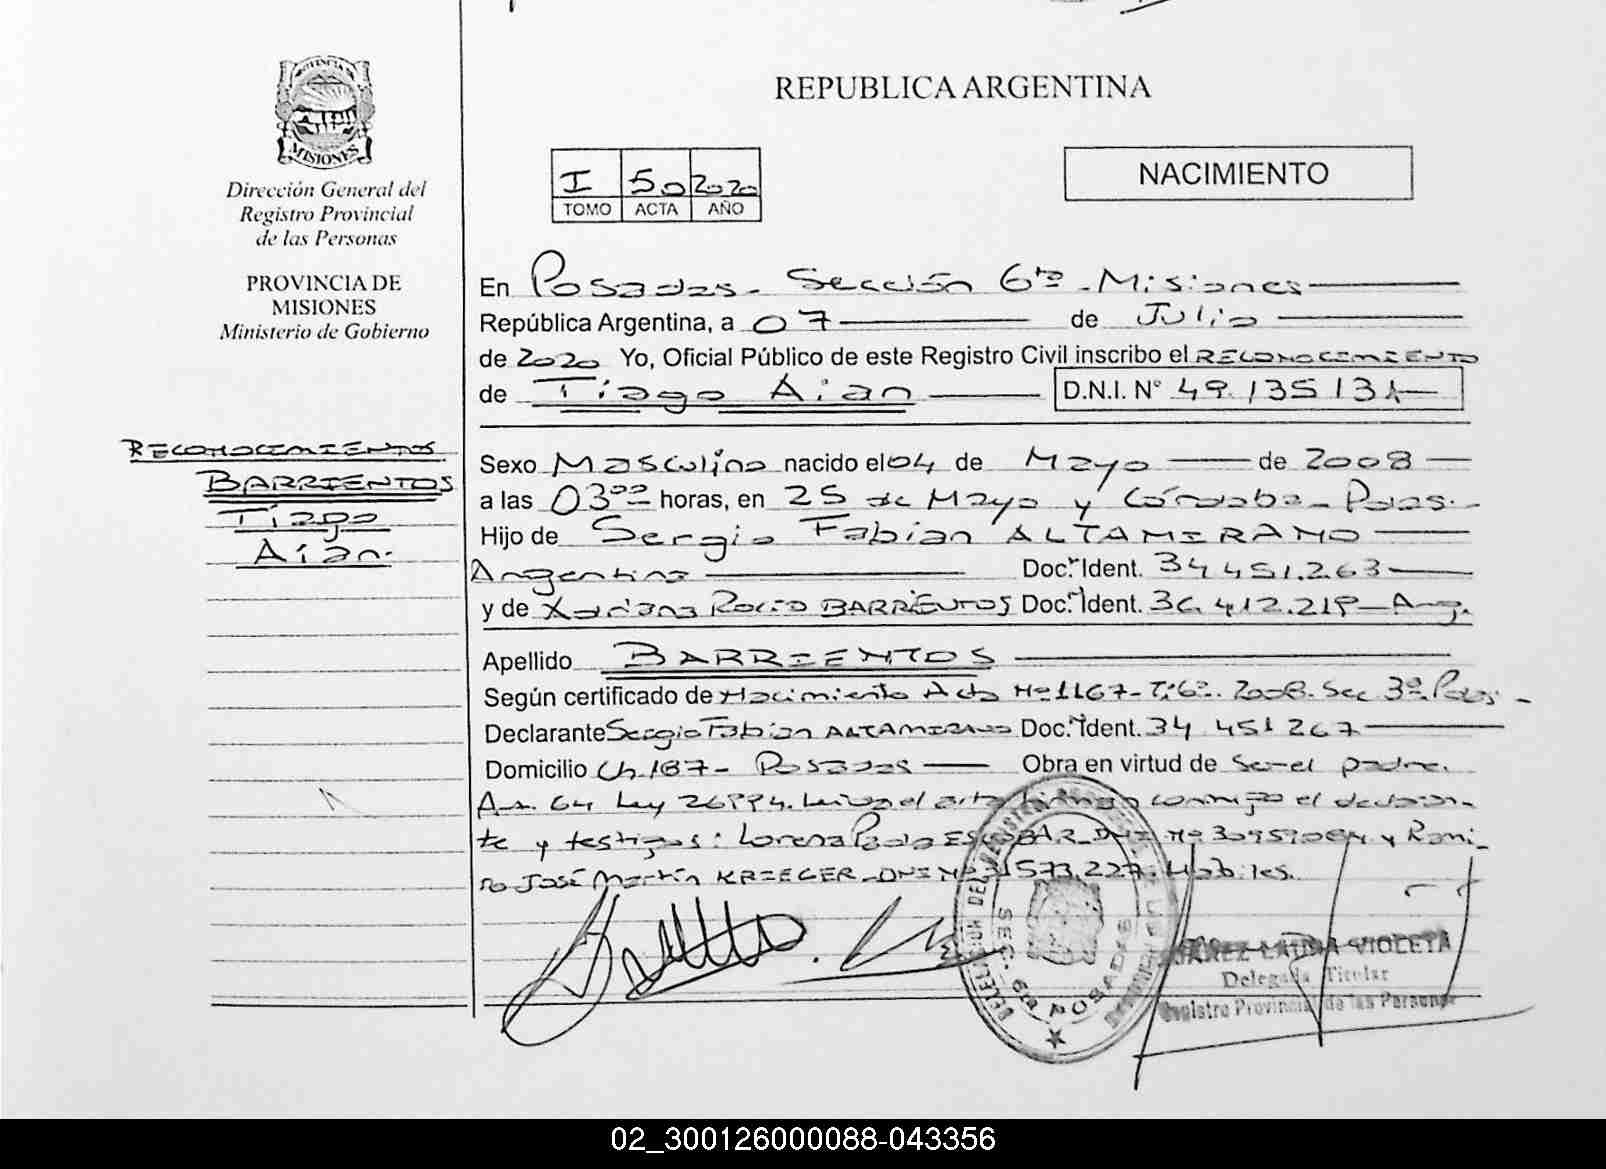 PROVINCIA DE
MISIONES
Dirección General del
Registro Provincial
de las Personas
PROVINCIA DE
MISIONES
Ministerio de Gobierno
RECONOCIMIENTOS
BARRIENTOS
Tiago
Aian.
REPUBLICA ARGENTINA
I 50 2020
TOMO ACTA AÑO
NACIMIENTO
En Posadas - Sección 6ta - Misiones
República Argentina, a 07 de Julio
de 2020 Yo, Oficial Público de este Registro Civil inscribo el RECONOCIMIENTO
de Tiago Aian D.N.I. N° 49.135.131
Sexo Masculino nacido el 04 de Mayo de 2008
a las 03:00 horas, en 25 de Mayo y Córdoba - Pdas.
Hijo de Sergio Fabian ALTAMIRANO
Argentino Doc. Ident. 34.451.263
y de Rocío BARRIENTOS Doc. Ident. 36.412.219 - Arg.
Apellido BARRIENTOS
Según certificado de Nacimiento Acta Nº 1167 - T: 6º. 2008. Sec 3º. Pdas -
Declarante Sergio Fabian ALTAMIRANO Doc. Ident. 34 451 267
Domicilio Ch. 187 - Posadas Obra en virtud de ser el padre.
Art. 64 Ley 26994. Leída el acta firman conmigo el declaran-
te y testigos: Lorena Paola ESCOBAR - DNI Nº y Rami-
ro José Martín KRIEGER - DNI Nº 31573.227. Hábiles.
SEC. 6ta POSADAS
LAURA VIOLETA
Delegada Titular
Registro Provincial de las Personas
02_300126000088-043356